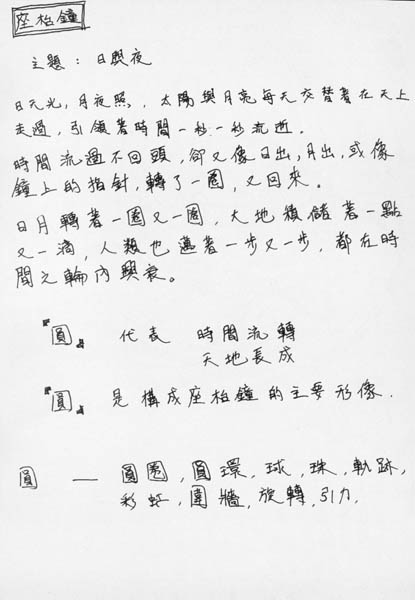 座枱鐘
主題：日與夜
日天光，月夜照，太陽與月亮每天交替著在天上
走過，引領著時間一秒一秒流逝。
時間流過不回頭，卻又像日出，月出，或像
鐘上的指針，轉了一圈，又回來。
日月轉著一圈又一圈，大地積儲著一點
又一滴，人類也邁著一步又一步，都在時
間之輪內興衰。
『圓』 代表 時間流轉
天地長成
『圓』 是構成座枱鐘的主要形像.
圓 — 圓圈, 圓環, 球, 珠, 軌跡,
彩虹, 圍牆, 旋轉, 引力.